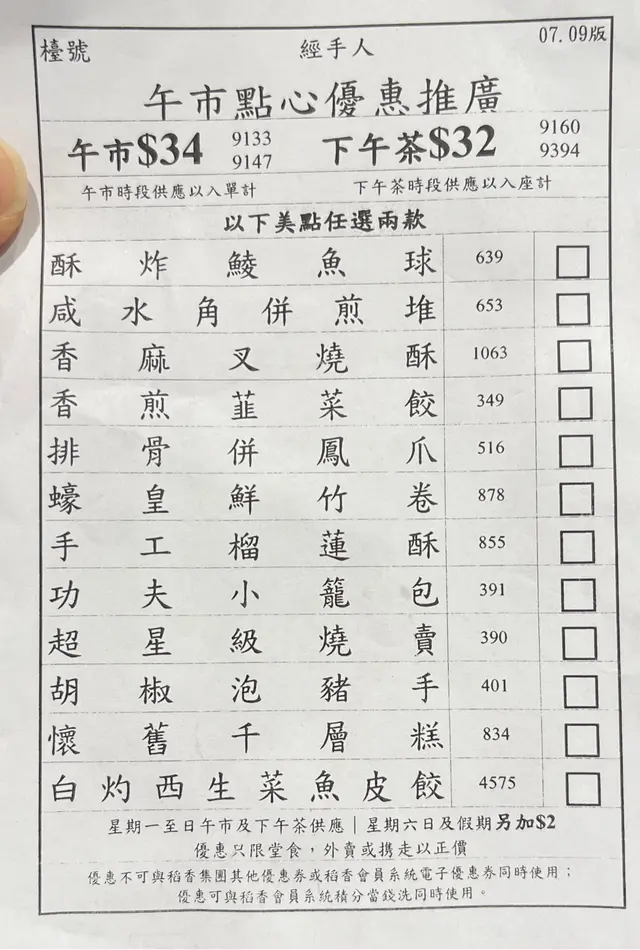 檯號 經手人 07.09版
午市點心優惠推廣
午市$34 9133 9147 下午茶$32 9160 9394
午市時段供應以入單計 下午茶時段供應以入座計
以下美點任選兩款
酥炸鯪魚球 639
咸水角併煎堆 653
香麻叉燒酥 1063
香煎韮菜餃 349
排骨併鳳爪 516
蠔皇鮮竹卷 878
手工榴蓮酥 855
功夫小籠包 391
超星級燒賣 390
胡椒泡豬手 401
懷舊千層糕 834
白灼西生菜魚皮餃 4575
星期一至日午市及下午茶供應｜星期六日及假期另加$2
優惠只限堂食，外賣或携走以正價
優惠不可與稻香集團其他優惠券或稻香會員系統電子優惠券同時使用；
優惠可與稻香會員系統積分當錢洗同時使用。